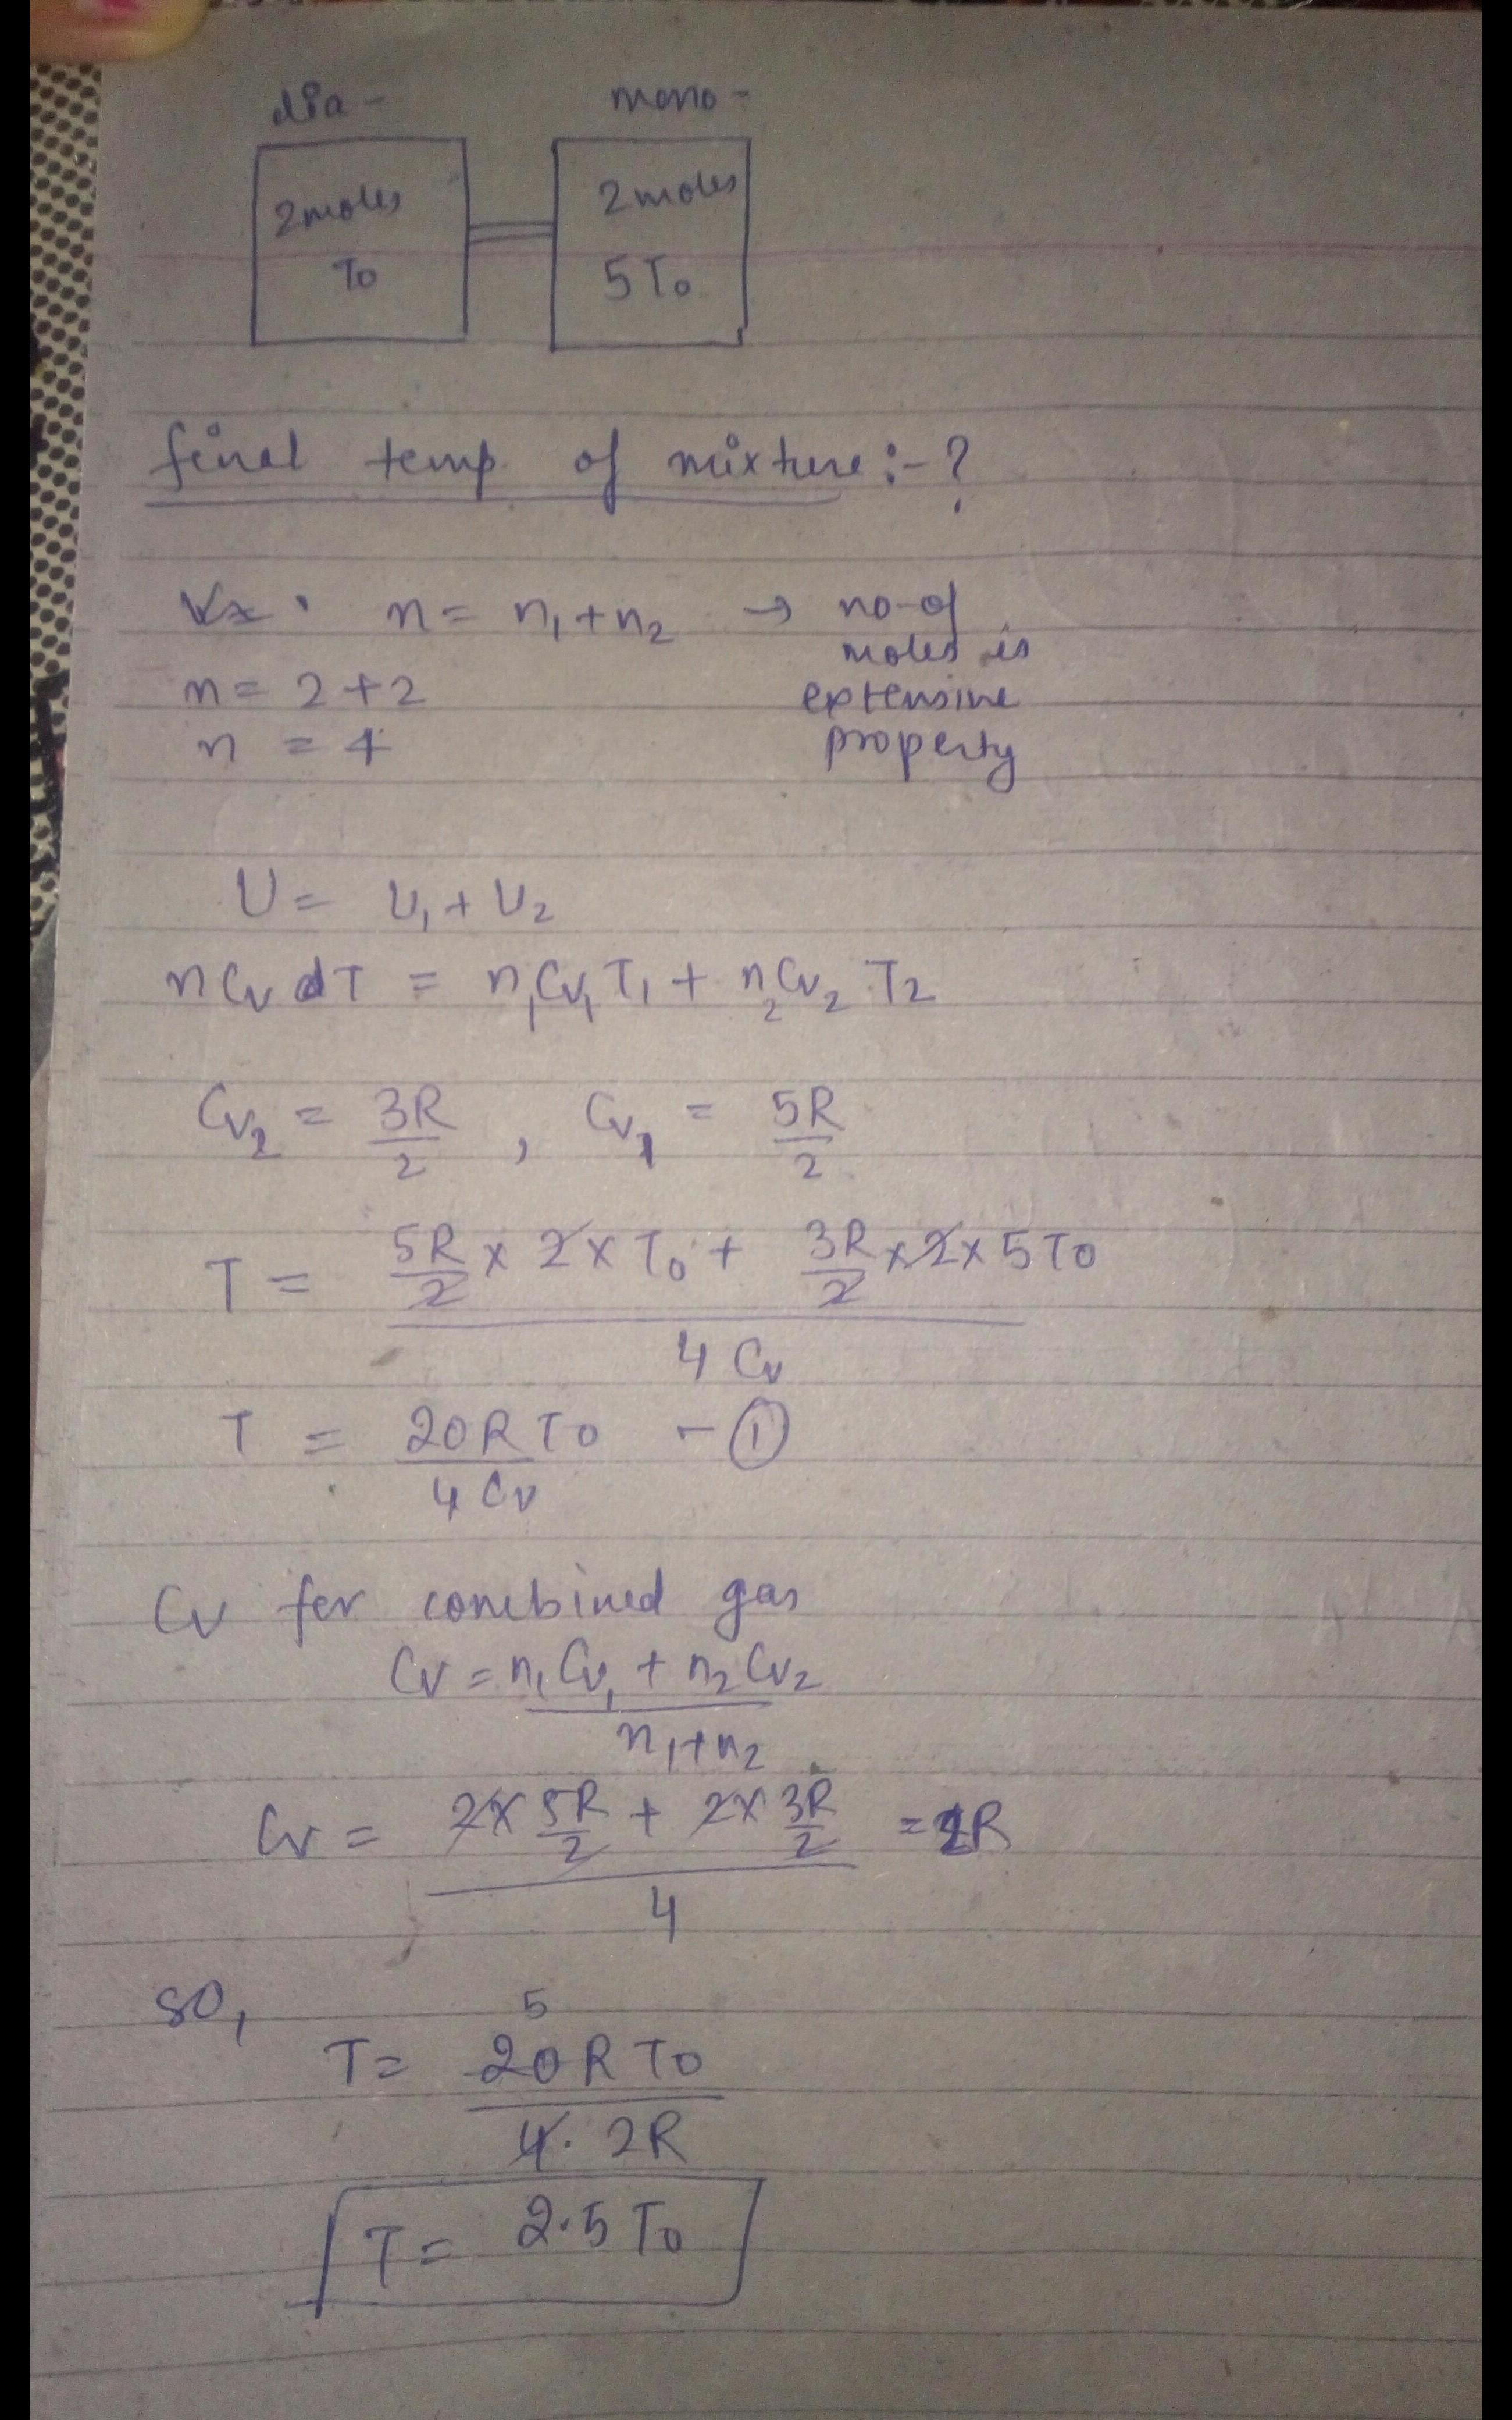 dia-
mono-
2moles
To
2moles
5To
final temp. of mixture:-?
n = n₁+n₂ → no-of moles is extensive property
n = 2+2
n = 4
U = U₁ + U₂
nCv dT = n₁Cv₁T₁ + n₂Cv₂ T₂
Cv₂ = 3R/2 , Cv₁ = 5R/2
T = (5R/2 × 2 × To + 3R/2 × 2 × 5To) / 4Cv
T = 20RTo / 4Cv - ①
Cv for combined gas
Cv = (n₁Cv₁ + n₂Cv₂) / (n₁+n₂)
Cv = (2× 5R/2 + 2× 3R/2) / 4 = 2R
so,
5
T = 20RTo / 4. 2R
T = 2.5To